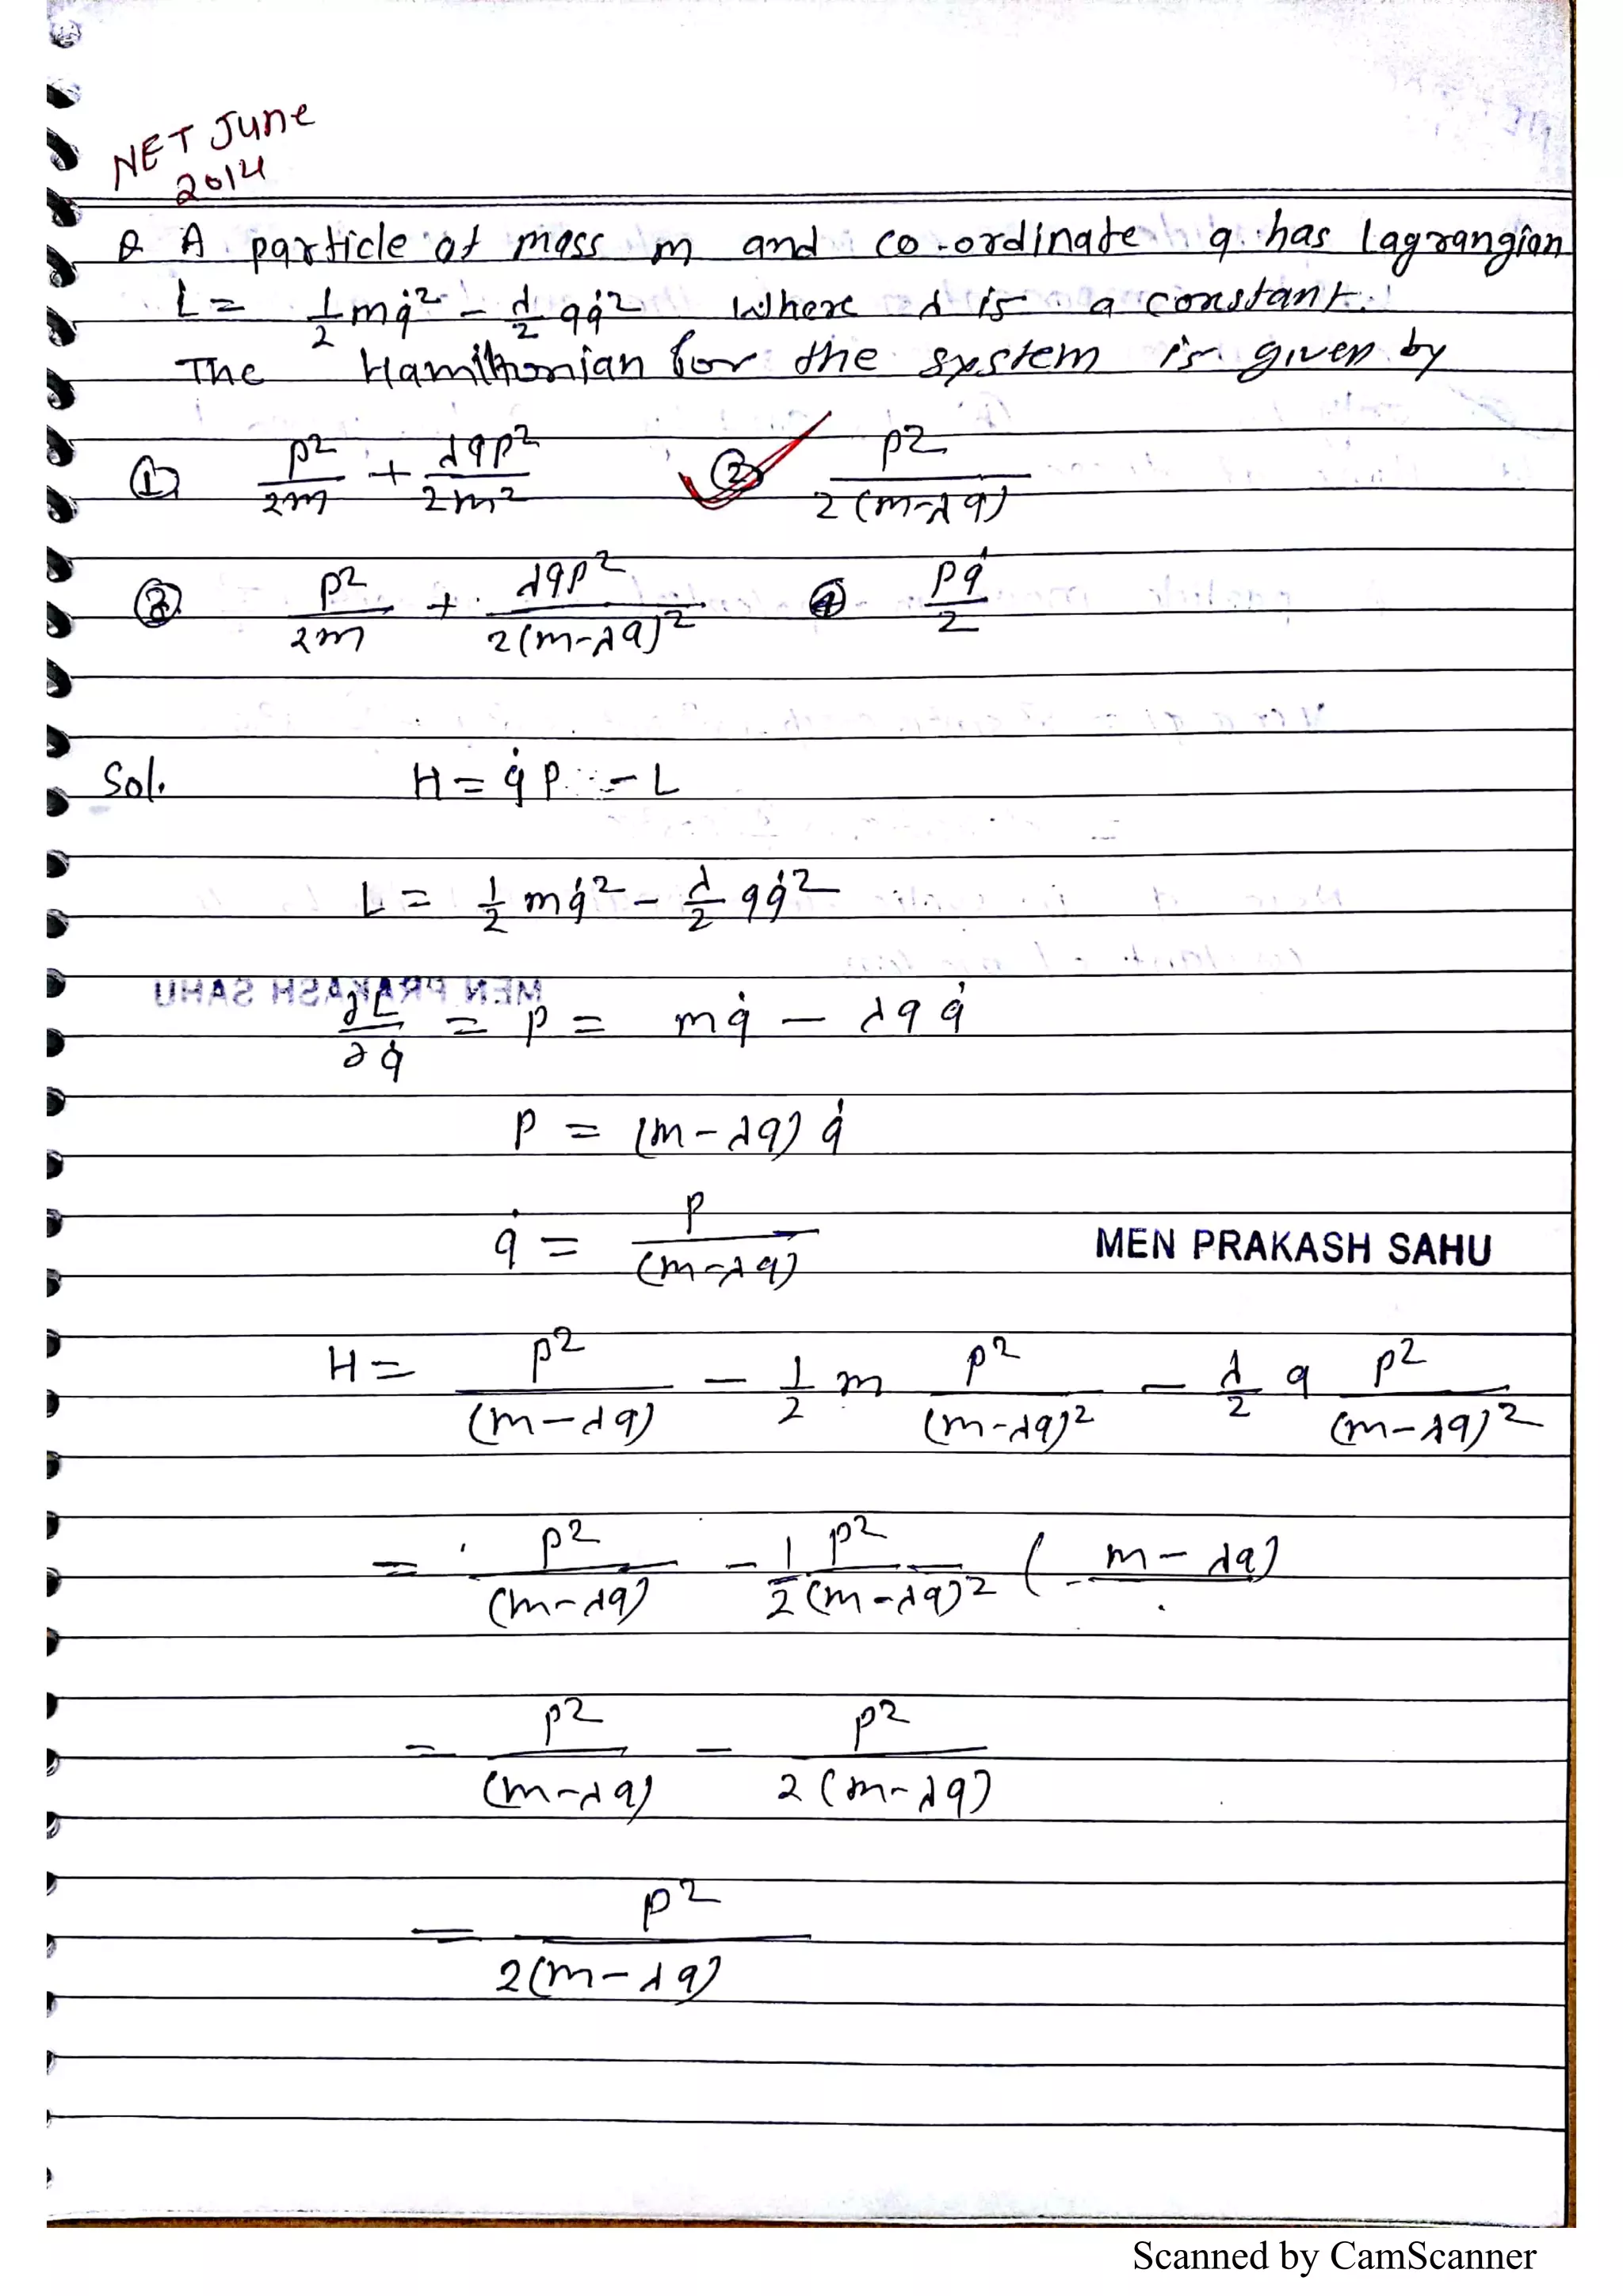 NET June
2014
Q A particle of mass m and co-ordinate q has Lagrangian
L = 1/2 mq̇² - λ/2 qq̇² where λ is a constant.
The Hamiltonian for the system is given by
① p²/2m + λqp²/2m² ② p²/2(m-λq)
③ p²/2m + λqp²/2(m-λq)² ④ pq̇/2
Sol. H = q̇ p - L
L = 1/2 mq̇² - λ/2 qq̇²
MEN PRAKASH SAHU
∂L/∂q̇ = p = mq̇ - λqq̇
P = (m-λq) q̇
q̇ = p/(m-λq)
MEN PRAKASH SAHU
H = p²/(m-λq) - 1/2 m p²/(m-λq)² - λ/2 q p²/(m-λq)²
= p²/(m-λq) - 1/2 p²/(m-λq)² (m-λq)
= p²/(m-λq) - p²/2(m-λq)
= p²/2(m-λq)
Scanned by CamScanner